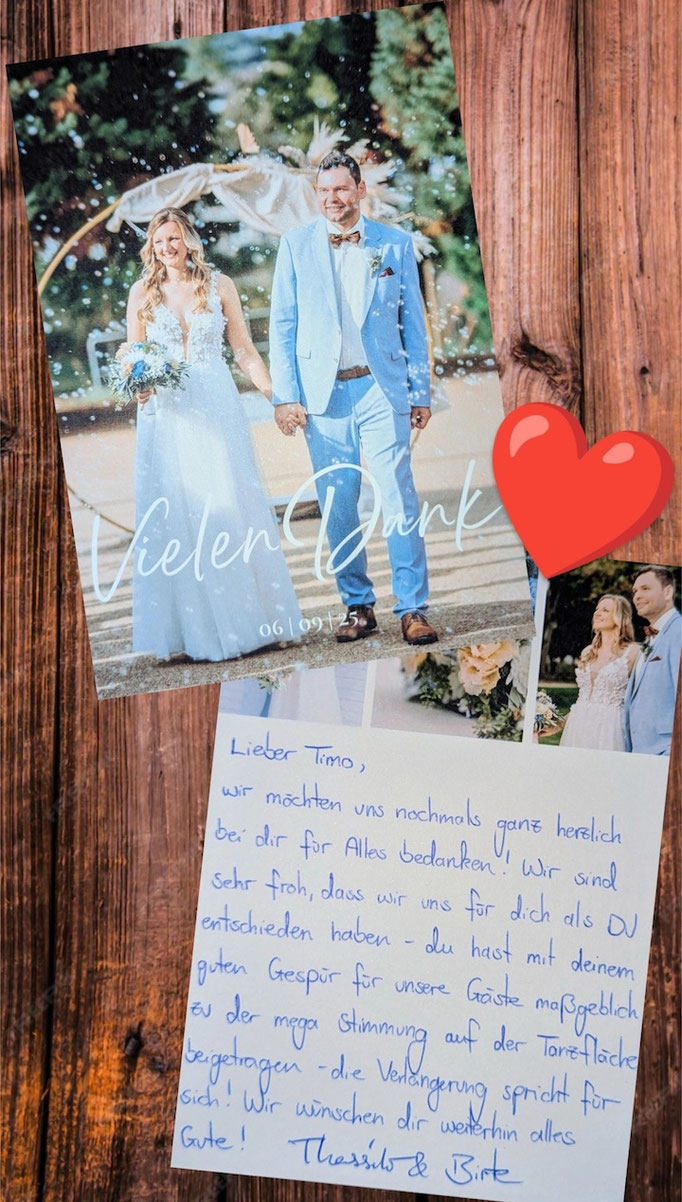 Vielen Dank
06 | 09 | 25
Lieber Timo,
wir möchten uns nochmals ganz herzlich
bei dir für Alles bedanken! Wir sind
sehr froh, dass wir uns für dich als DJ
entschieden haben - du hast mit deinem
guten Gespür für unsere Gäste maßgeblich
zu der mega Stimmung auf der Tanzfläche
beigetragen - die Verlängerung spricht für
sich! Wir wünschen dir weiterhin alles
Gute! & Birte